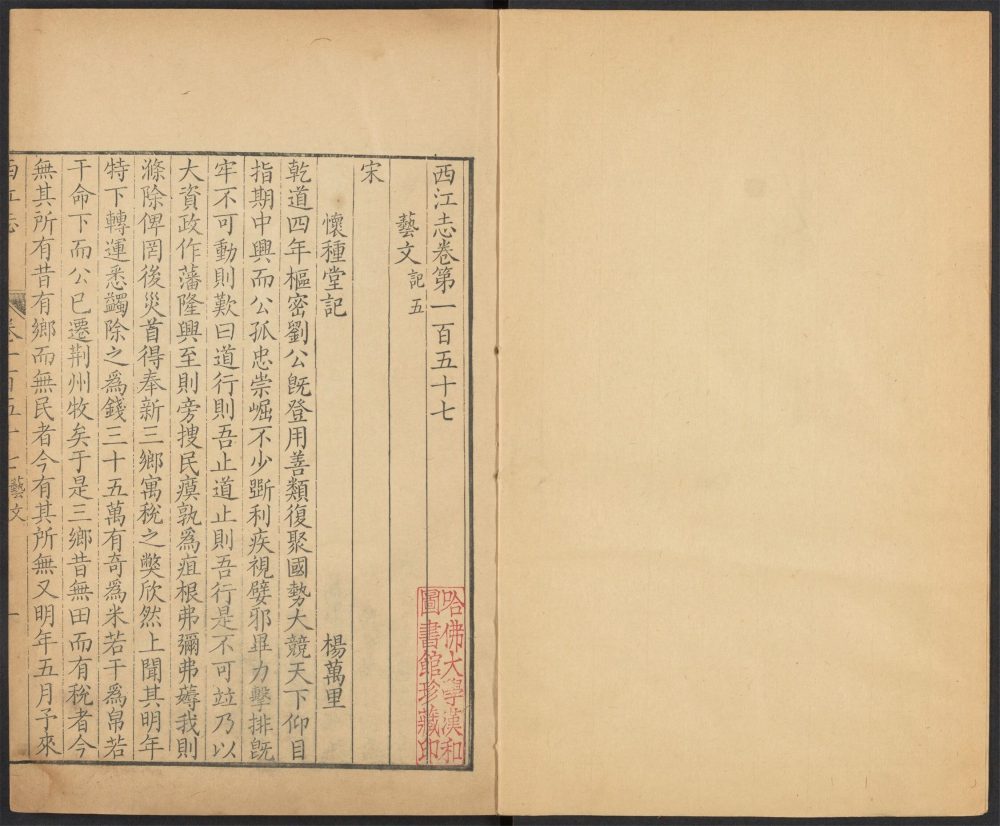 西江志卷第一百五十七
藝文記五
宋
懷種堂記 楊萬里
乾道四年樞密劉公既登用善類復聚國勢大競天下仰目
指期中興而公孤忠崇崛不少斲利疾視嬖邪畢力擊排既
牢不可動則歎曰道行則吾止道止則吾行是不可竝乃以
大資政作藩隆興至則旁搜民瘼孰為疽根弗彌弗薅我則
滌除俾罔後災首得奉新三鄉寓稅之獘欣然上聞其明年
特下轉運悉蠲除之為錢三十五萬有奇為米若干為帛若
干命下而公已遷荆州牧矣于是三鄉昔無田而有稅者今
無其所有昔有鄉而無民者今有其所無又明年五月予來
西江志 卷一百五十七 藝文 一
哈佛大學漢和
圖書館珍藏印